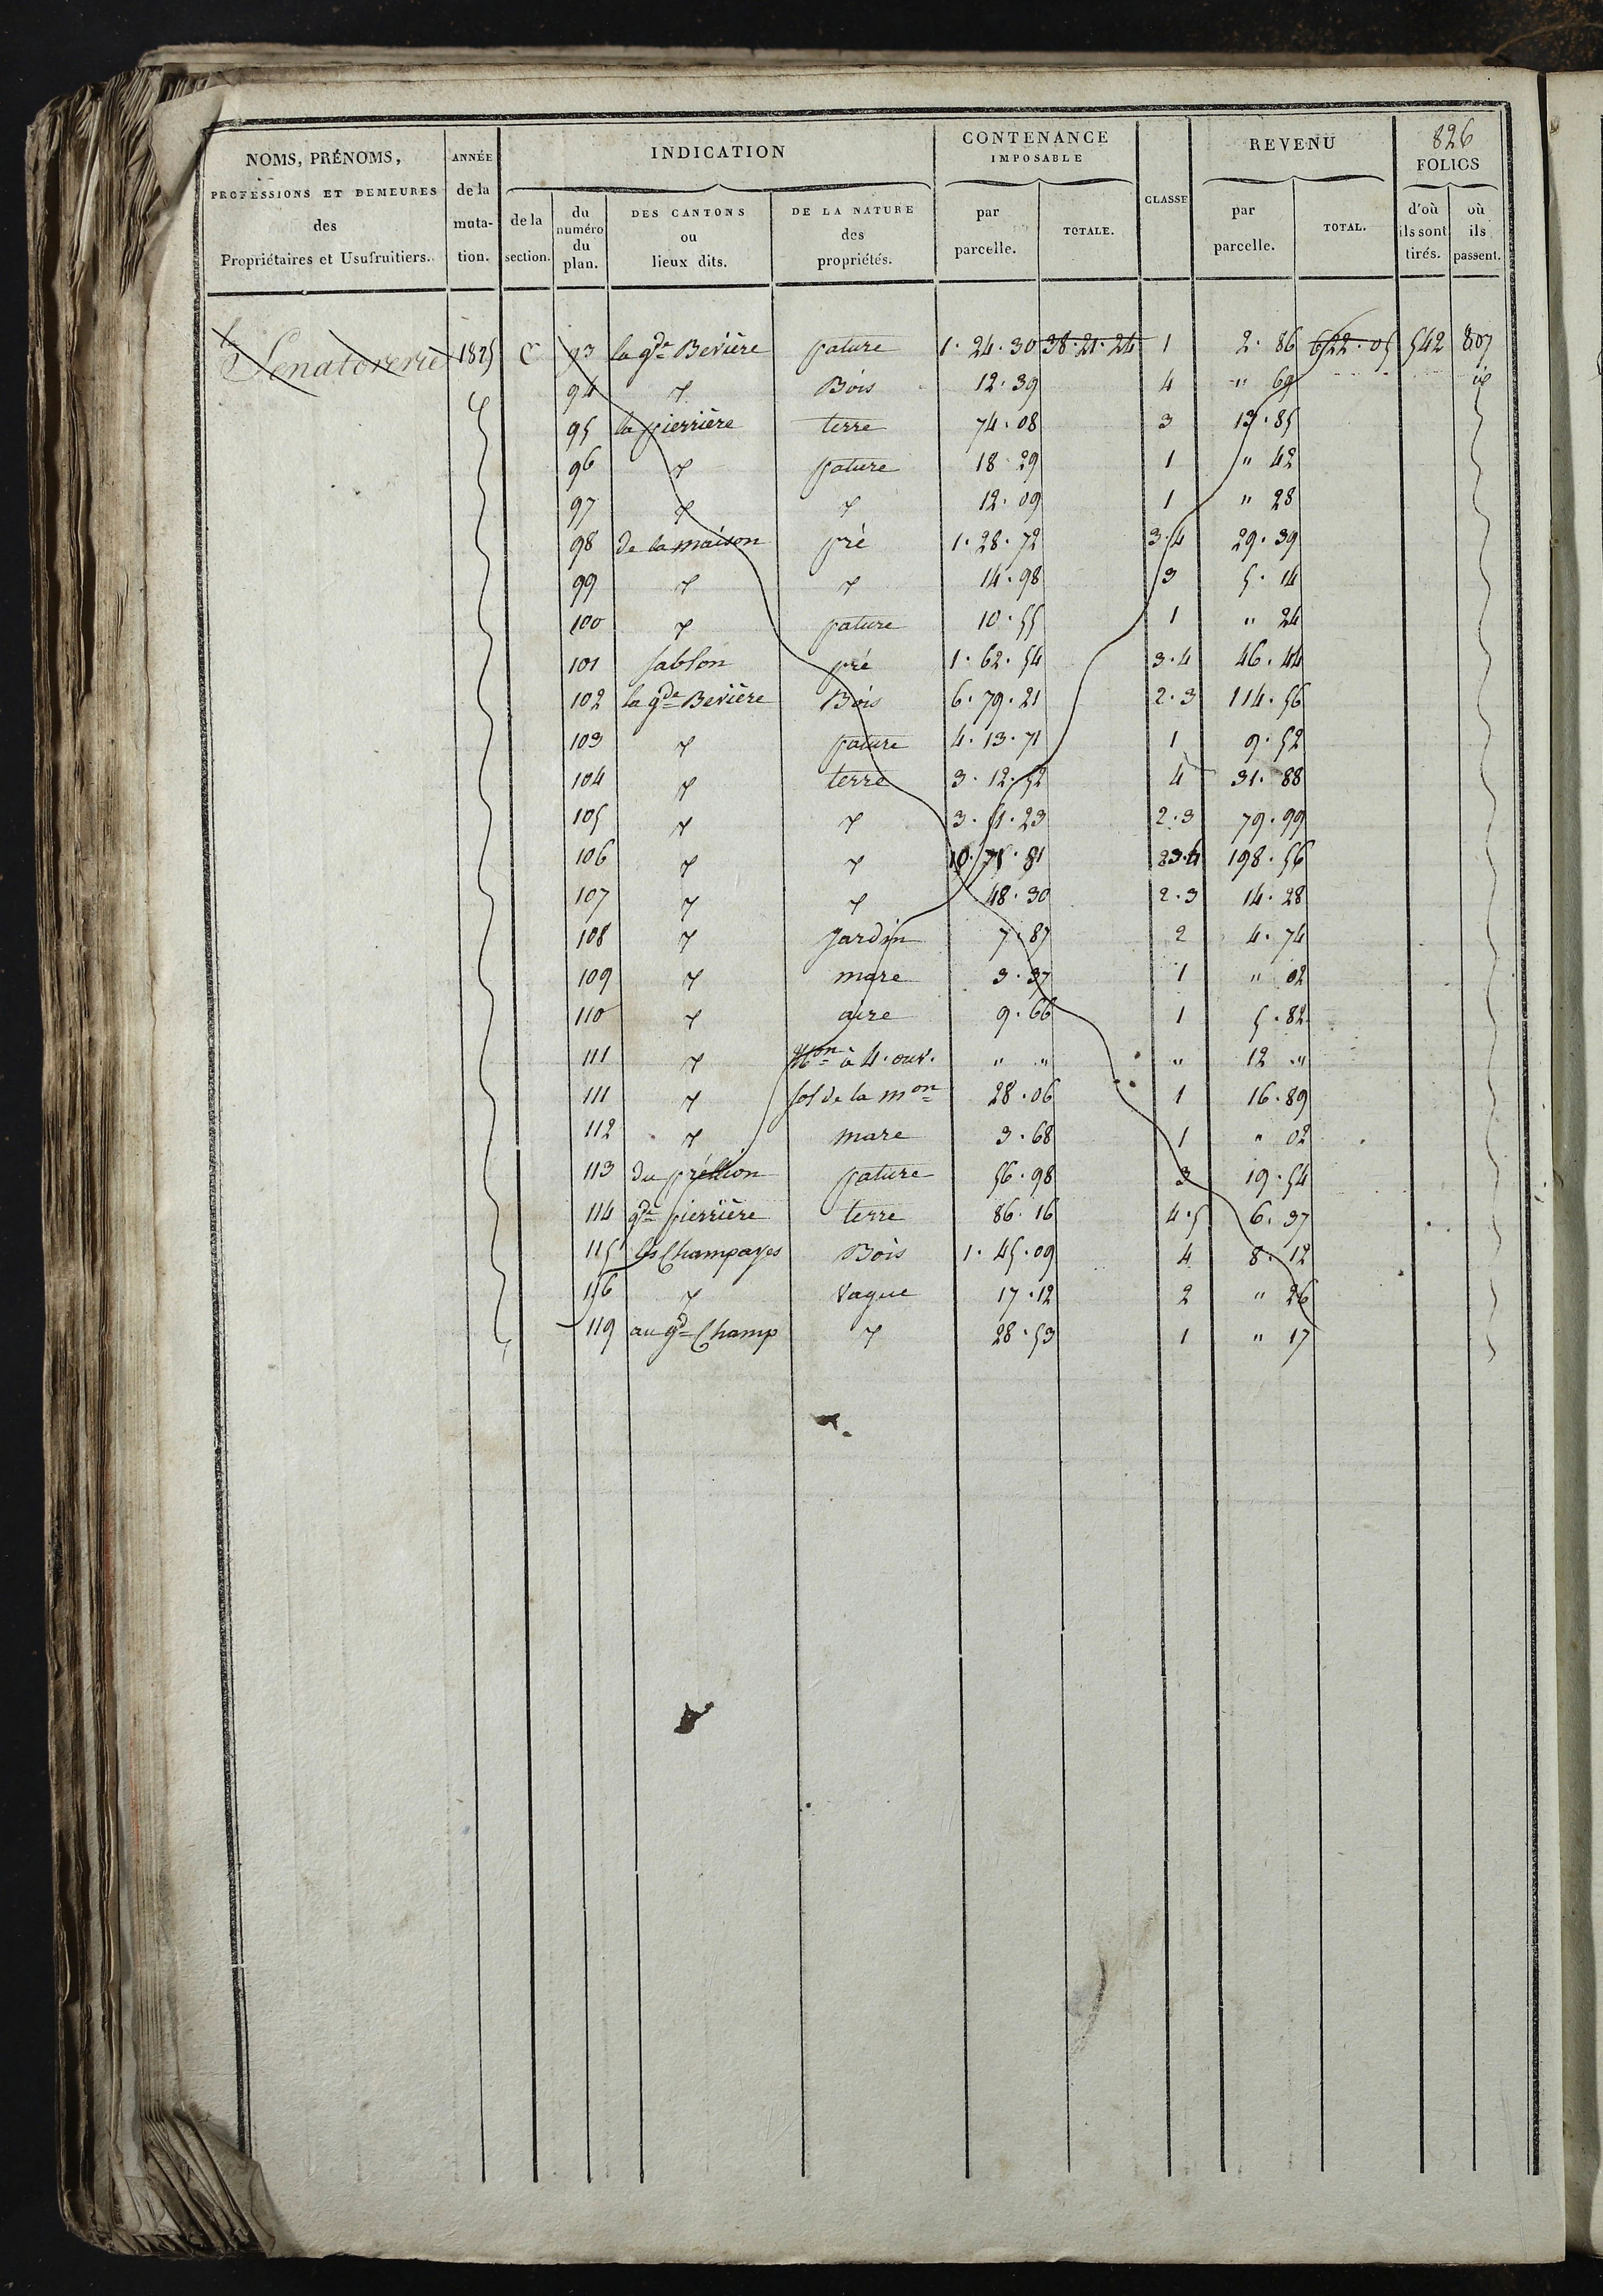 826
NOMS, PRÉNOMS, PROFESSIONS ET DEMEURES des Propriétaires et Usufruitiers.
ANNÉE de la muta-tion.
INDICATION
de la section.
du numéro du plan.
DES CANTONS ou lieux dits.
DE LA NATURE des propriétés.
CONTENANCE IMPOSABLE
par parcelle.
TOTALE.
CLASSE
REVENU
par parcelle.
TOTAL.
FOLIOS
d'où ils sont tirés.
où ils passent.
la Senatorerie 1825 C 93 la gde Bevière pature 1. 24. 30 38. 21. 24 1 2. 86 622. 05 542 807
94 Bois 12. 39 4 " 69
95 la pierrière terre 74. 08 3 13. 85
96 pature 18. 29 1 " 42
97 12. 09 1 " 28
98 de la maison pré 1. 28. 72 3.4 29. 39
99 14. 98 3 5. 14
100 pature 10. 55 1 " 24
101 Sablon pré 1. 62. 54 3.4 46. 44
102 la gde Bevière Bois 6. 79. 21 2.3 114. 56
103 pature 4. 13. 71 1 9. 52
104 terre 3. 12. 52 4 31. 88
105 3. 51. 23 2.3 79. 99
106 10. 78. 81 2.3.4 198. 56
107 48. 30 2.3 14. 28
108 Jardin 7. 87 2 4. 74
109 mare 3. 37 1 " 02
110 aire 9. 66 1 5. 82
111 Mon à 4. ouv. " " " 12 "
111 sol de la mon 28. 06 1 16. 89
112 mare 3. 68 1 " 02
113 du pature 56. 98 3 19. 54
114 gde pierrière terre 86. 16 4.5 6. 37
115 les Champayes Bois 1. 45. 09 4 8. 12
116 Vague 17. 12 2 " 26
119 au gd Champ 28. 53 1 " 17